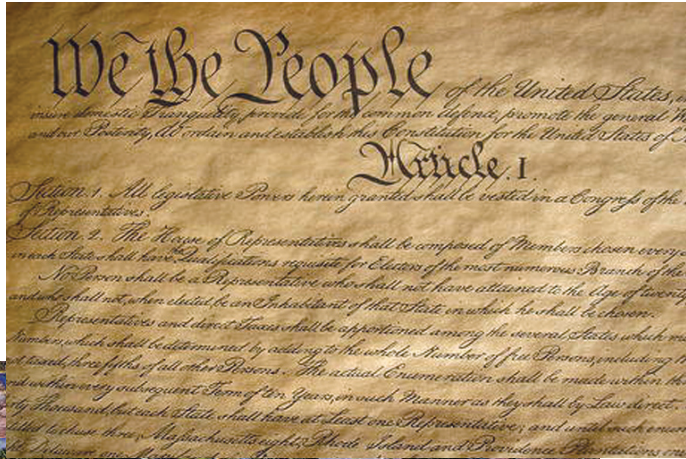 We the People of the United States,
insure domestic Tranquility, provide for the common defence, promote the general
and our Posterity, do ordain and establish this Constitution for the United States of
Article. I.
Section. 1. All legislative Powers herein granted shall be vested in a Congress of the
of Representatives.
Section. 2. The House of Representatives shall be composed of Members chosen every
in each State shall have the Qualifications requisite for Electors of the most numerous Branch of the
No Person shall be a Representative who shall not have attained to the Age of twenty
and who shall not, when elected, be an Inhabitant of that State in which he shall be chosen.
Representatives and direct Taxes shall be apportioned among the several States which
Numbers, which shall be determined by adding to the whole Number of free Persons, including
not taxed, three fifths of all other Persons. The actual Enumeration shall be made within
and within every subsequent Term of ten Years, in such Manner as they shall by Law direct.
Thousand, but each State shall have at Least one Representative; and until such
chuse three, Massachusetts eight, Rhode Island and Providence Plantations
Delaware one, Maryland